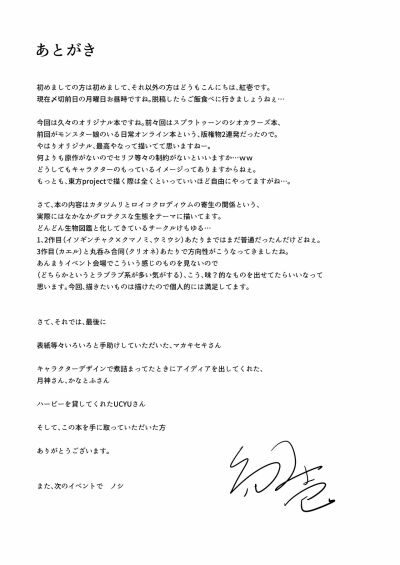 あとがき
初めましての方は初めまして、それ以外の方はどうもこんにちは、紅壱です。
現在〆切前日の月曜日お昼時ですね。脱稿したらご飯食べに行きましょうねぇ…
今回は久々のオリジナル本ですね。前々回はスプラトゥーンのシオカラーズ本、
前回がモンスター娘のいる日常オンライン本という、版権物2連発だったので。
やはりオリジナル、最高やなって描いてて思いますねー。
何よりも原作がないのでセリフ等々の制約がないといいますか…ww
どうしてもキャラクターのもっているイメージってありますからねぇ。
もっとも、東方projectで描く際は全くといっていいほど自由にやってますがね…。
さて、本の内容はカタツムリとロイコクロリディウムの寄生の関係という、
実際にはなかなかグロテスクな生態をテーマに描いてます。
どんどん生物図鑑と化してきているサークルけもゆる…
1、2作目（イソギンチャク×クマノミ、ウミウシ）あたりまではまだ普通だったんだけどねぇ。
3作目（カエル）と丸呑み合同（クリオネ）あたりで方向性がこうなってきましたね。
あんまりイベント会場でこういう感じのものを見ないので
（どちらかというとラブラブ系が多い気がする）、こう、味？的なものを出せてたらいいなって
思います。今回、描きたいものは描けたので個人的には満足してます。
さて、それでは、最後に
表紙等々いろいろと手助けしていただいた、マカキセキさん
キャラクターデザインで煮詰まってたときにアイディアを出してくれた、
月神さん、かなとふさん
ハーピーを貸してくれたUCYUさん
そして、この本を手に取っていただいた方
ありがとうございます。
また、次のイベントで　ノシ
紅壱